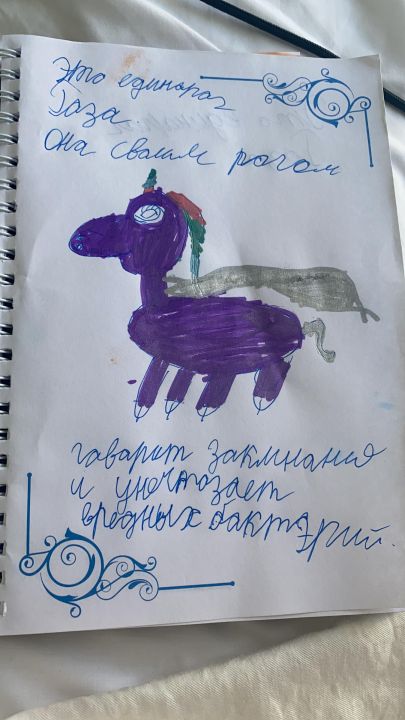 Это единарог
Газа.
Она своим рогом
гаварит заклинания
и уничтозает
вредных бактэрий.